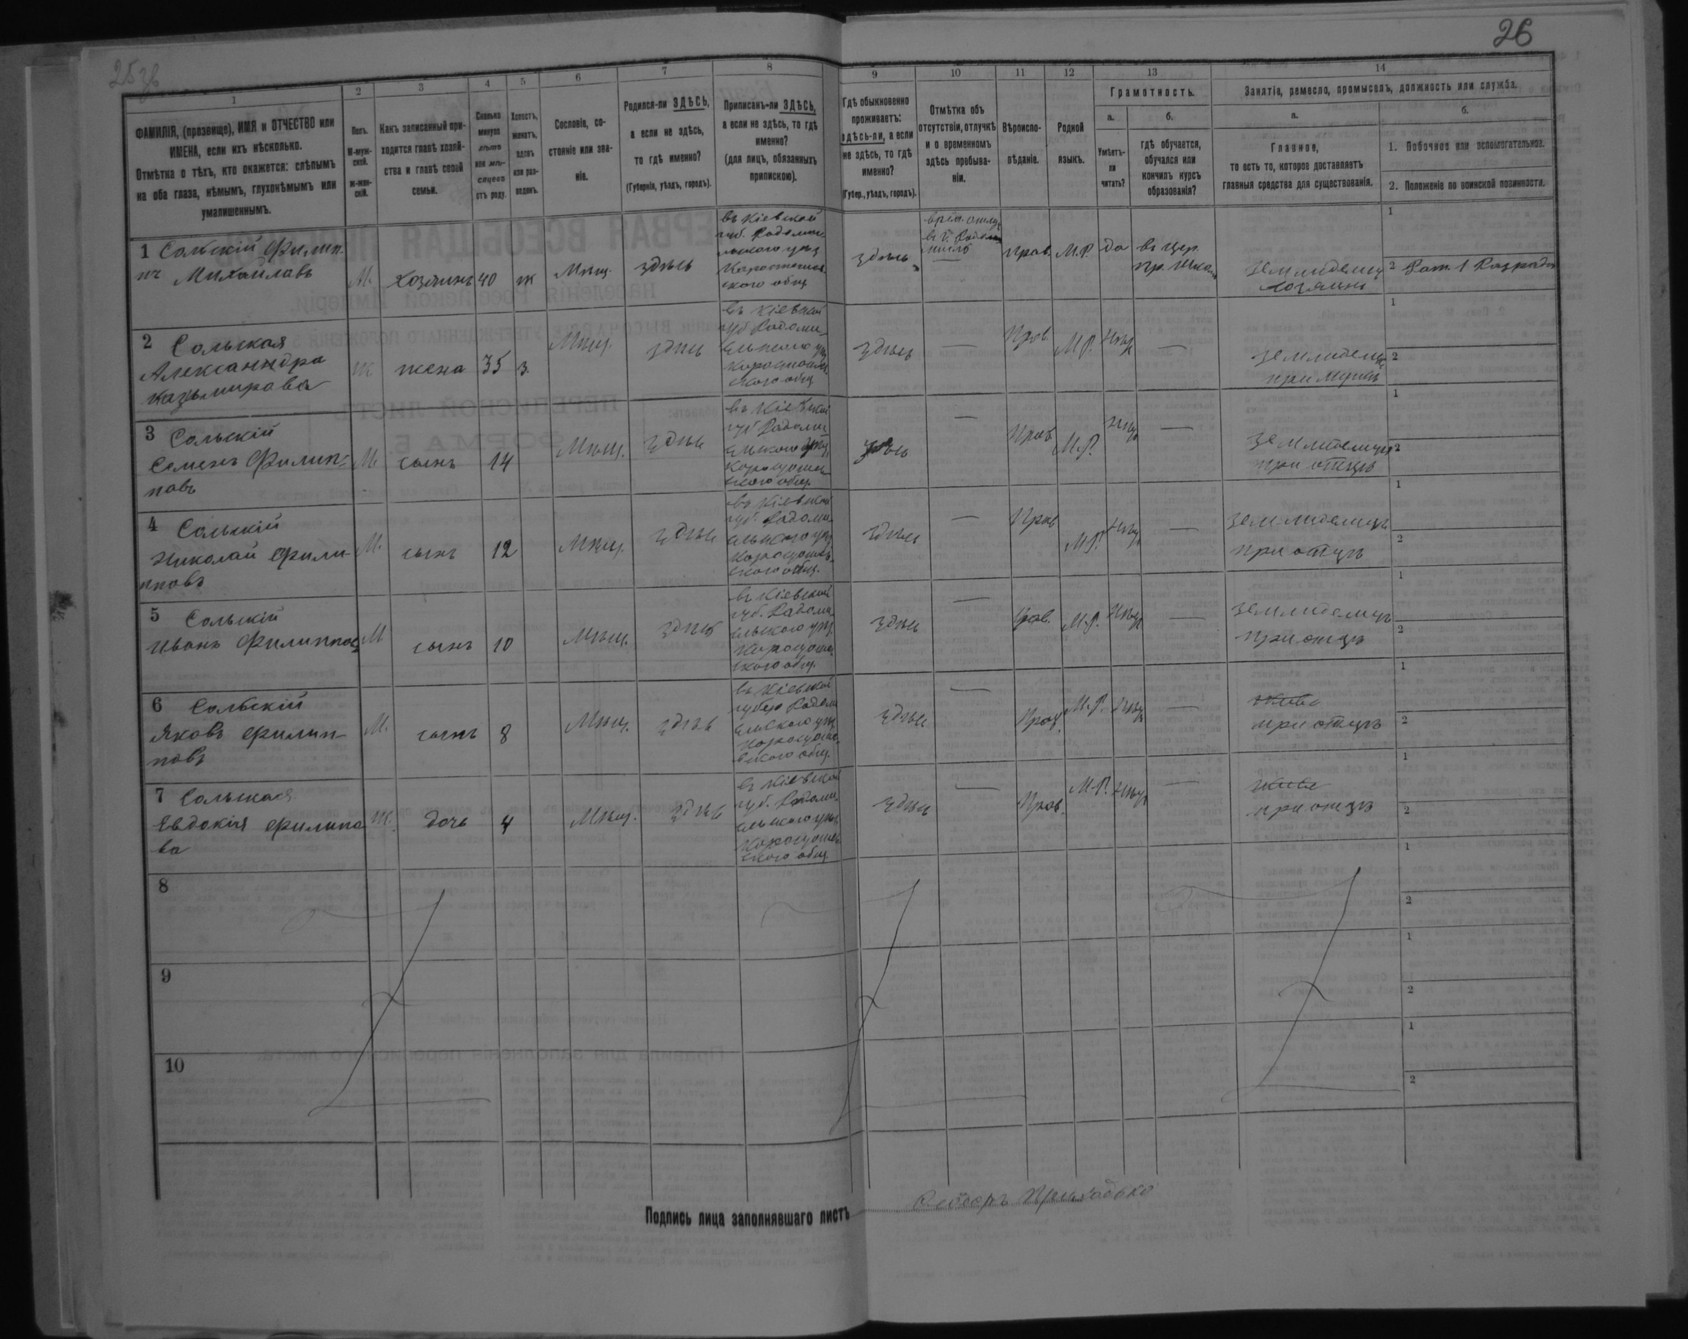 25 зв
26
1
2
3
4
5
6
7
8
9
10
11
12
13
14
ФАМИЛІЯ, (прозвище), ИМЯ и ОТЧЕСТВО или
ИМЕНА, если ихъ нѣсколько.
Отмѣтка о тѣхъ, кто окажется: слѣпымъ
на оба глаза, нѣмымъ, глухонѣмымъ или
умалишеннымъ.
Полъ.
М-муж-
ской.
Ж-жен-
скій.
Какъ записанный при-
ходится главѣ хозяй-
ства и главѣ своей
семьи.
Сколько
минуло
лѣтъ
или мѣ-
сяцевъ
отъ роду.
Холостъ,
женатъ,
вдовъ
или раз-
веденъ.
Сословіе, со-
стояніе или зва-
ніе.
Родился-ли ЗДѢСЬ,
а если не здѣсь,
то гдѣ именно?
(Губернія, уѣздъ, городъ).
Приписанъ-ли ЗДѢСЬ,
а если не здѣсь, то гдѣ
именно?
(для лицъ, обязанныхъ
припискою).
Гдѣ обыкновенно
проживаетъ:
здѣсь-ли, а если
не здѣсь, то гдѣ
именно?
(Губер., уѣздъ, городъ).
Отмѣтка объ
отсутствіи, отлучкѣ
и о временномъ
здѣсь пребыва-
ніи.
Вѣроиспо-
вѣданіе.
Родной
языкъ.
Грамотность.
а.
Умѣетъ-
ли
читать?
б.
гдѣ обучается,
обучался или
кончилъ курсъ
образованія?
Занятіе, ремесло, промыселъ, должность или служба.
а.
Главное,
то есть то, которое доставляетъ
главныя средства для существованія.
б.
1. Побочное или вспомогательное.
2. Положеніе по воинской повинности.
1 Сольскій Филип
пъ Михайловъ
М. хозяинъ 40 ж Мѣщ. здѣсь
въ Кіевской
губ. Радомы
льского уѣз
Коростыше
вского общ
здѣсь
Прав. М.Р. да
въ цер.
пр. школ
Земледѣлец
хозяинъ
2 Рат. 1 Разряда
2 Сольская
Александра
Казьмирова
Ж. жена 35 з. Мѣщ. здѣсь
въ Кіевской
губ. Радомы
ельского уѣз
Коростыше
вского общ
здѣсь — Прав М.Р. Нѣт —
Земледелец
при мужѣ
3 Сольскій
Семенъ Филип-
повъ
М. сынъ 14 Мѣщ. здѣсь
въ Кіевской
губ Радомы
ельского уѣз
Коростыше
вского общ.
здѣсь — Прав М.Р. Нѣт —
Земледелец
при отцѣ
4 Сольскій
Николай Фили-
пповъ
М. сынъ 12 Мѣщ. здѣсь
въ Кіевской
губ. Радомы
ельского уѣз
Коростыше
вского общ.
здѣсь — Прав М.Р. Нѣт —
Земледелецъ
при отцѣ
5 Сольскій
Иванъ Филиппов
М сынъ 10 Мѣщ. здѣсь
въ Кіевской
губ. Радомы
ельского уѣз
Коростыше
вского общ.
здѣсь — Прав. М.Р. Нѣт —
Земледелецъ
при отцѣ
6 Сольскій
Яковъ Филип-
повъ
М. сынъ 8 Мѣщ. здѣсь
въ Кіевской
губер Радом
ельского уѣз
Коростыше
вского общ.
здѣсь — Прав. М.Р. Нѣт —
при отцѣ
7 Сольская
Евдокія Филипо
ва
Ж. дочь 4 Мѣщ. здѣсь
въ Кіевской
губ. Радомы
ельского уѣз
Коростыше
вского общ
здѣсь Прав. М.Р. Нѣт —
при отцѣ
8
9
10
Подпись лица заполнявшаго листъ Ѳеодоръ Приходько